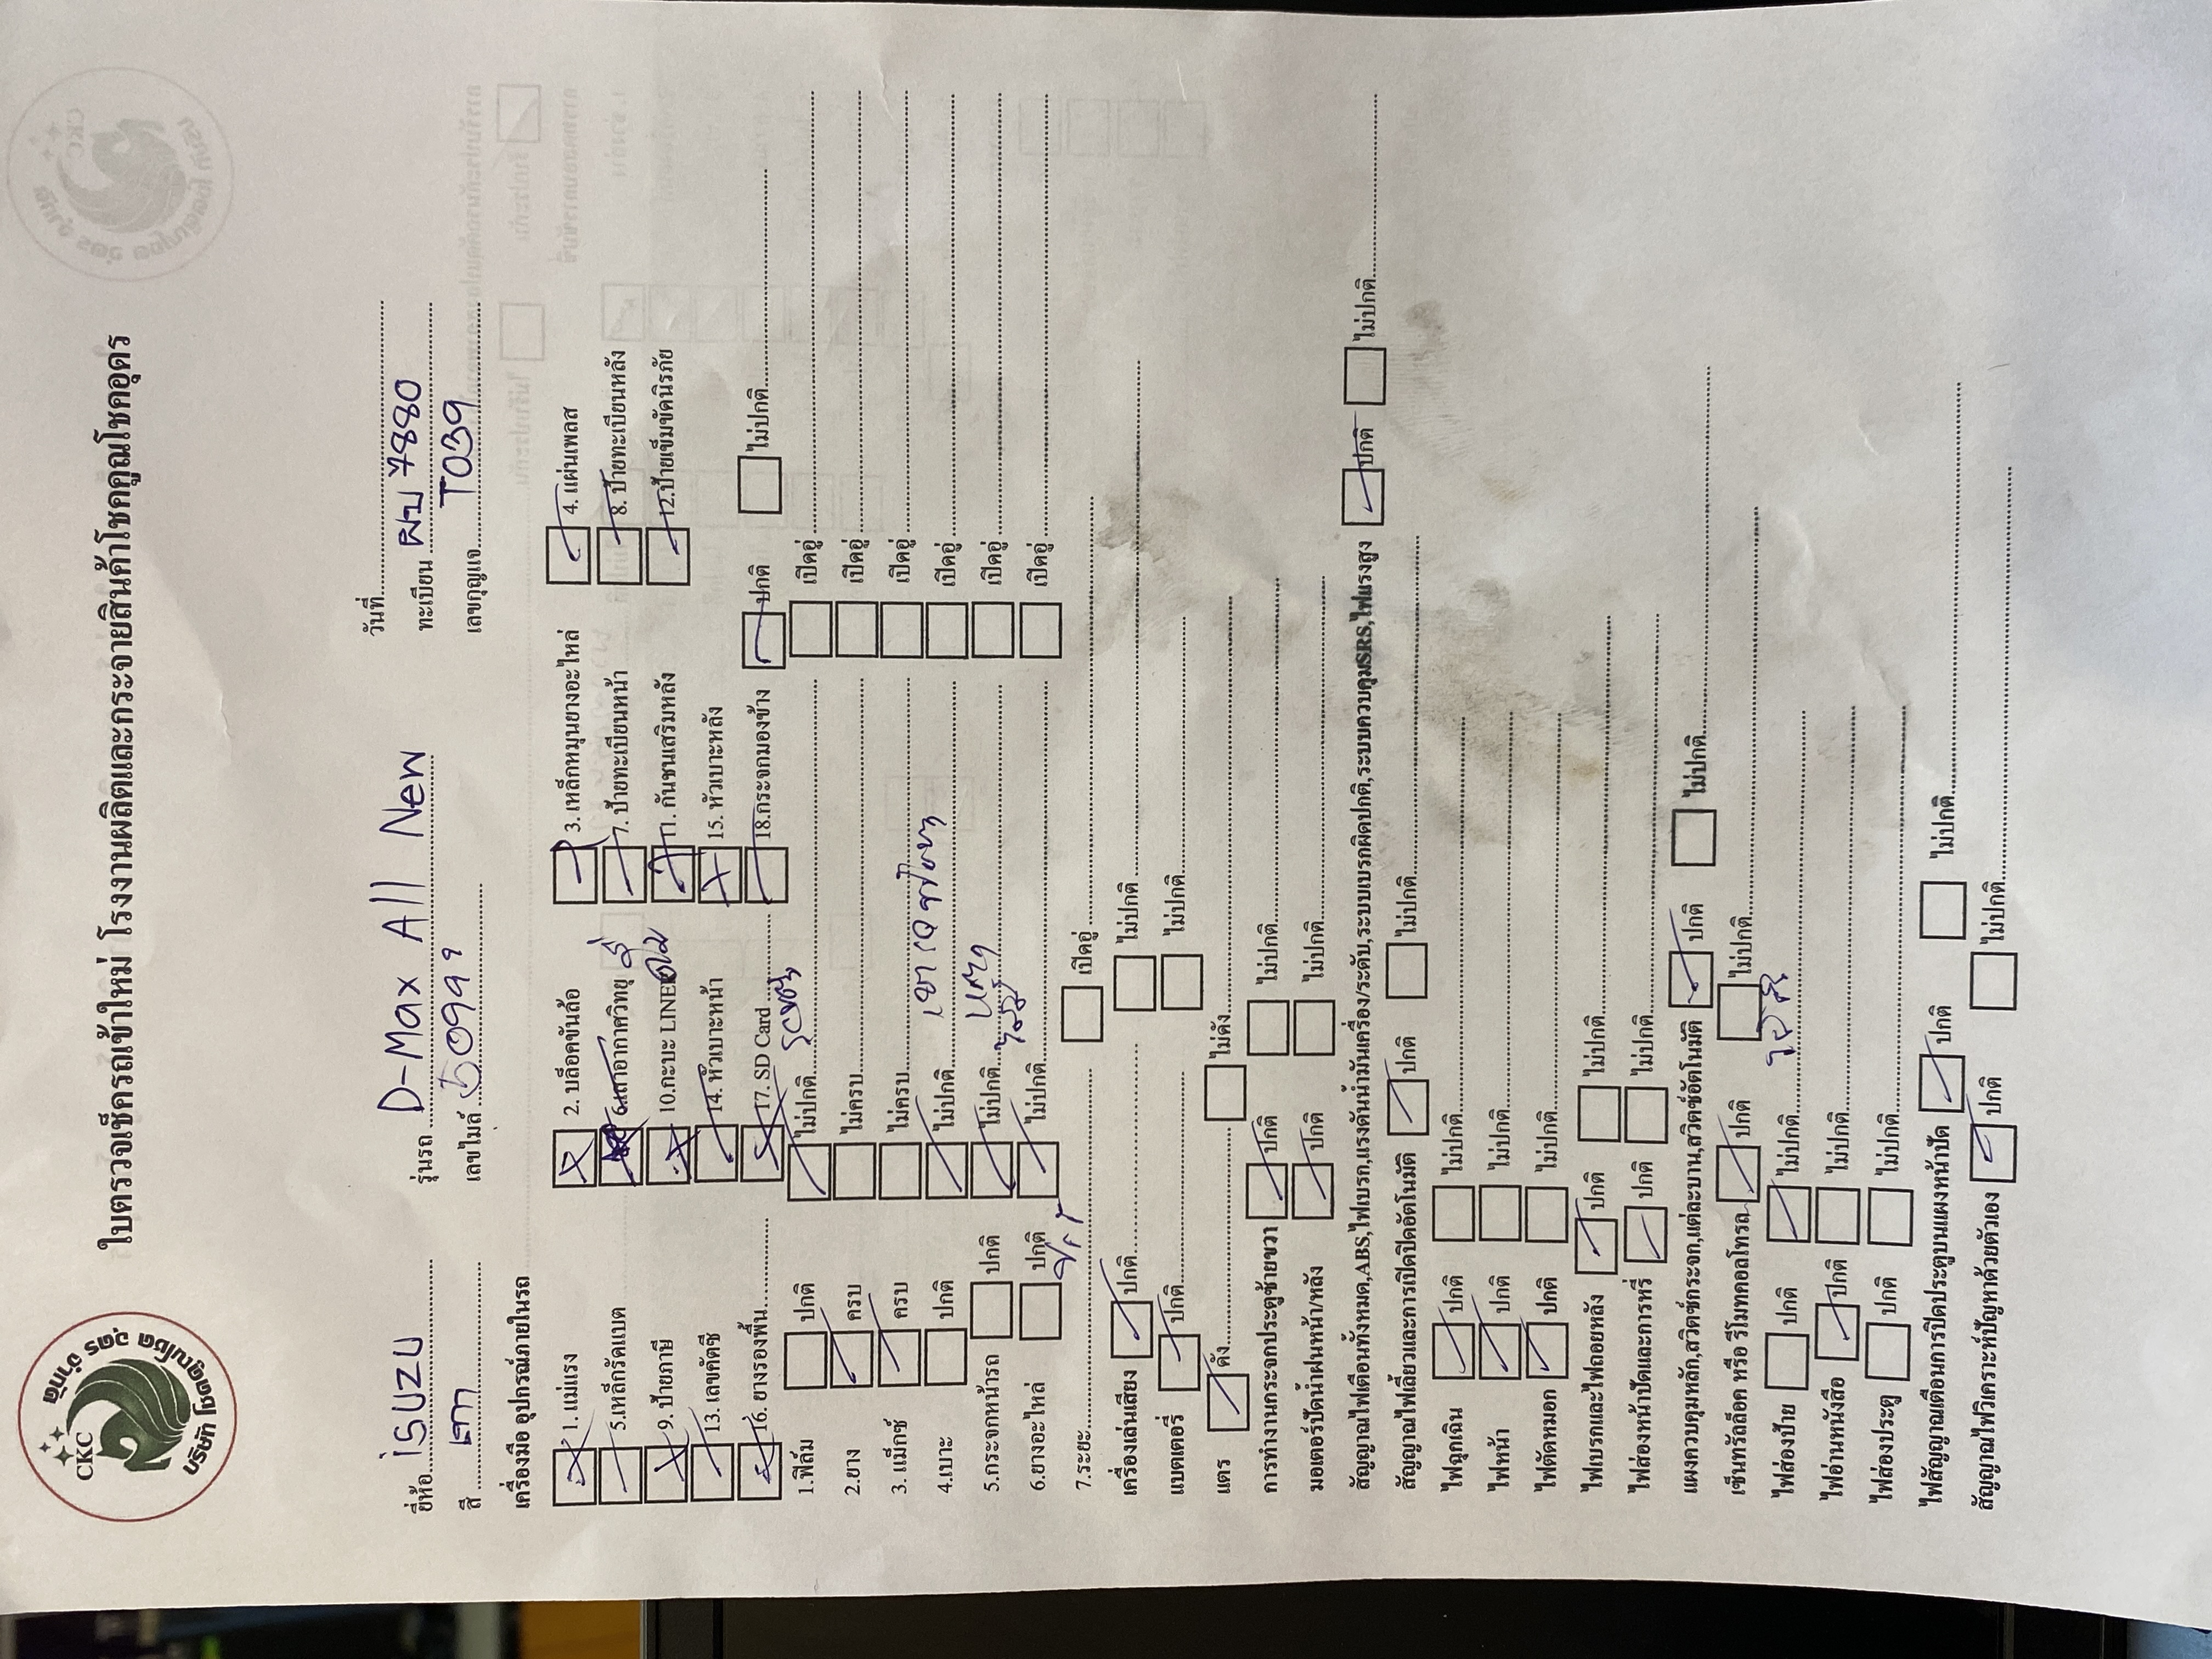 CKC
บริษัท โชคคูณโชค อุดร จำกัด
ใบตรวจเช็ครถเข้าใหม่ โรงงานผลิตและกระจายสินค้าโชคคูณโชคอุดร
วันที่
ยี่ห้อ iSUZU รุ่นรถ D-Max All New ทะเบียน ผบ 7880
สี เทา เลขไมล์ เลขกุญแจ T039
เครื่องมือ อุปกรณ์ภายในรถ
1. แม่แรง 2. บล็อคขันล้อ 3.เหล็กหมุนยางอะไหล่ 4. แผ่นเพลส
5.เหล็กกรัดเบต 6.เสาอากาศวิทยุ 7. ป้ายทะเบียนหน้า 8. ป้ายทะเบียนหลัง
9. ป้ายภาษี 10.กะบะ LINER 11. กันชนเสริมหลัง 12.ป้ายเข็มขัดนิรภัย
13. เลขคัตซี 14. หัวเบาะหน้า 15. หัวเบาะหลัง
16. ยางรองพื้น 17. SD Card 18.กระจกมองข้าง ปกติ ไม่ปกติ
1.ฟิล์ม ปกติ ไม่ปกติ เปิดอู่
2.ยาง ครบ ไม่ครบ เปิดอู่
3. แม็กซ์ ครบ ไม่ครบ เปิดอู่
4.เบาะ ปกติ ไม่ปกติ เปิดอู่
5.กระจกหน้ารถ ปกติ ไม่ปกติ แตก เปิดอู่
6.ยางอะไหล่ ปกติ ไม่ปกติ เปิดอู่
7.ระยะ เปิดอู่
เครื่องเล่นเสียง ปกติ ไม่ปกติ
แบตเตอรี่ ปกติ ไม่ปกติ
แตร ดัง ไม่ดัง
การทำงานกระจกประตูซ้ายขวา ปกติ ไม่ปกติ
มอเตอร์ปัดน้ำฝนหน้า/หลัง ปกติ ไม่ปกติ
สัญญาณไฟเตือนทั้งหมด,ABS,ไฟเบรก,แรงดันน้ำมันเครื่อง/ระดับ,ระบบเบรกผิดปกติ,ระบบควบคุมSRS,ไฟแรงสูง ปกติ ไม่ปกติ
สัญญาณไฟเลี้ยวและการเปิดปิดอัตโนมัติ ปกติ ไม่ปกติ
ไฟฉุกเฉิน ปกติ ไม่ปกติ
ไฟหน้า ปกติ ไม่ปกติ
ไฟตัดหมอก ปกติ ไม่ปกติ
ไฟเบรกและไฟถอยหลัง ปกติ ไม่ปกติ
ไฟส่องหน้าปัดและการหรี่ ปกติ ไม่ปกติ
แผงควบคุมหลัก,สวิตซ์กระจก,แต่ละบาน,สวิตซ์อัตโนมัติ ปกติ ไม่ปกติ
เซ็นทรัลล็อค หรือ รีโมทคอลโทรล ปกติ ไม่ปกติ
ไฟส่องป้าย ปกติ ไม่ปกติ
ไฟอ่านหนังสือ ปกติ ไม่ปกติ
ไฟส่องประตู ปกติ ไม่ปกติ
ไฟสัญญาณเตือนการปิดประตูบนแผงหน้าปัด ปกติ ไม่ปกติ
สัญญาณไฟวิเคราะห์ปัญหาด้วยตัวเอง ปกติ ไม่ปกติ